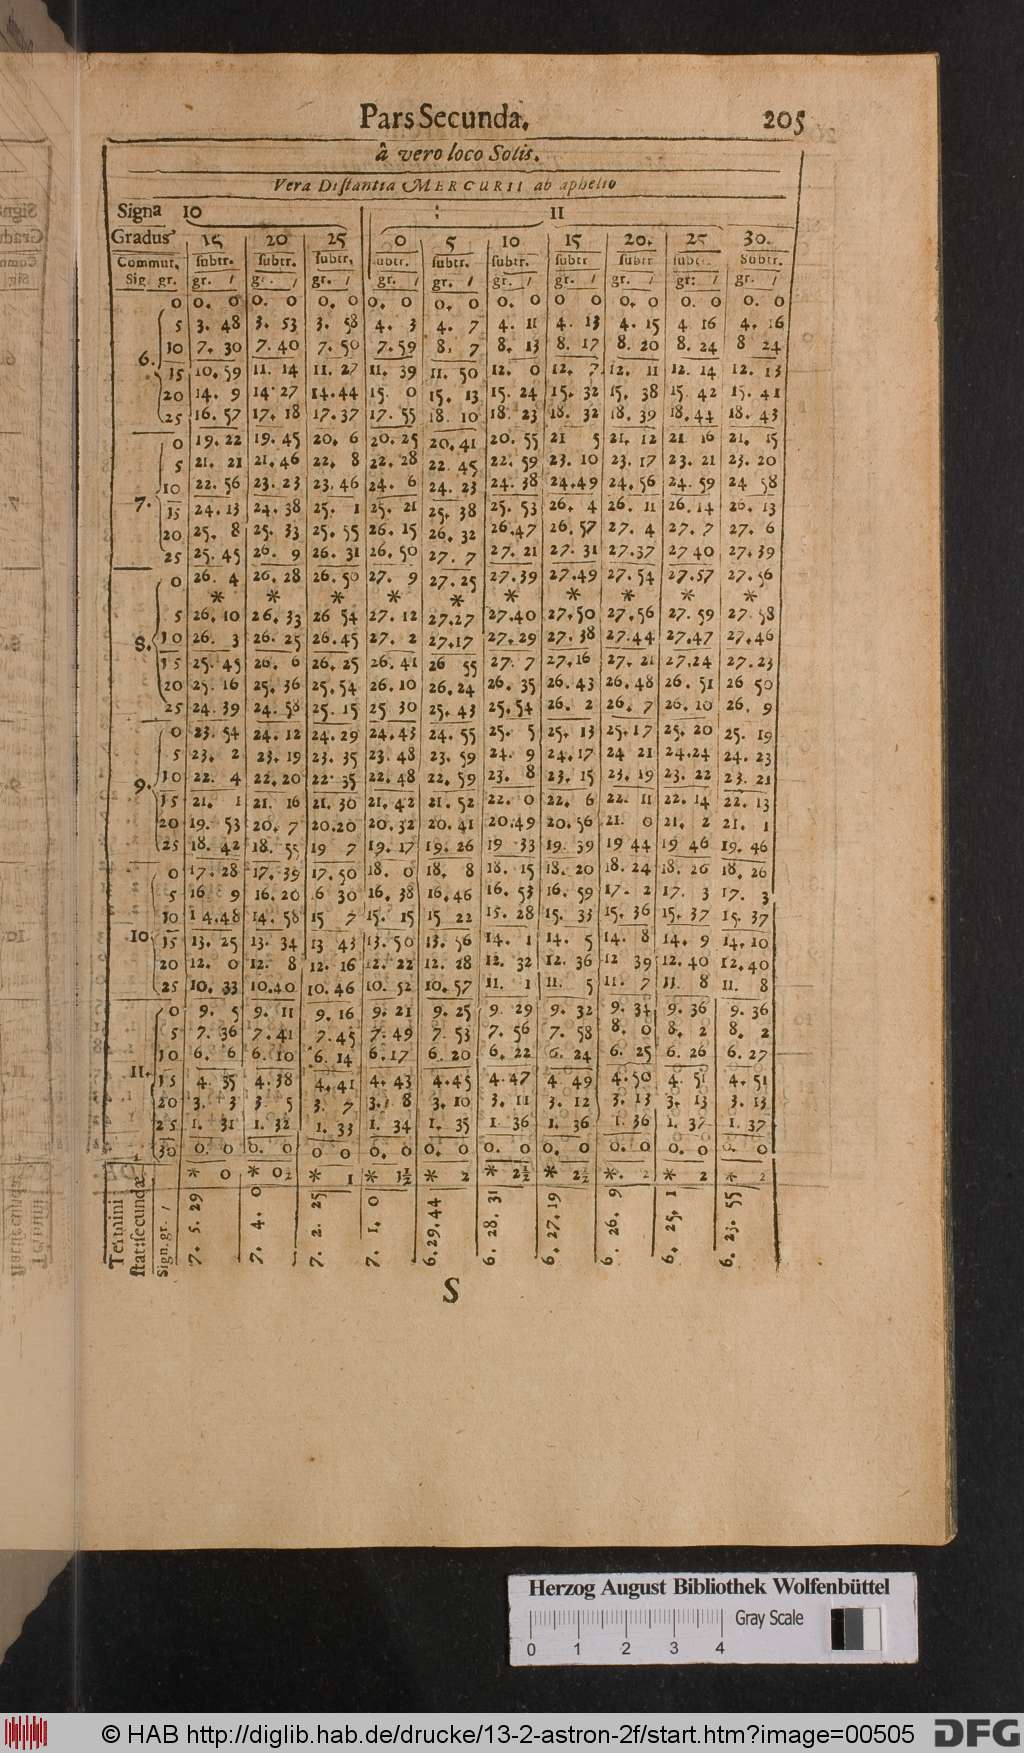 Pars Secunda. 205
â vero loco Solis.
Vera Distantia MERCURII ab aphelio
Signa 10 11
Gradus 15 20 25 0 5 10 15 20. 25 30.
Commut. subtr. subtr. subtr. subtr. subtr. subtr. subtr subtr subtr. subtr.
Sig. gr. gr. / gr. / gr. / gr. / gr. / gr. / gr. / gr. / gr: / gr. /
0 0. 0 0. 0 0. 0 0. 0 0. 0 0. 0 0 0 0. 0 0. 0 0. 0
5 3. 48 3. 53 3. 58 4. 3 4. 7 4. 11 4. 13 4. 15 4 16 4. 16
6. 10 7. 30 7. 40 7. 50 7. 59 8. 7 8. 13 8. 17 8. 20 8. 24 8 24
15 10. 59 11. 14 11. 27 11. 39 11. 50 12. 0 12. 7 12. 11 12. 14 12. 13
20 14. 9 14. 27 14. 44 15. 0 15. 13 15. 24 15. 32 15. 38 15. 42 15. 41
25 16. 57 17. 18 17. 37 17. 55 18. 10 18. 23 18. 32 18. 39 18. 44 18. 43
0 19. 22 19. 45 20. 6 20. 25 20. 41 20. 55 21 5 21. 12 21 16 21. 15
5 21. 21 21. 46 22. 8 22. 28 22. 45 22. 59 23. 10 23. 17 23. 21 23. 20
10 22. 56 23. 23 23. 46 24. 6 24. 23 24. 38 24. 49 24. 56 24. 59 24 58
7. 15 24. 13 24. 38 25. 1 25. 21 25. 38 25. 53 26. 4 26. 11 26. 14 26. 13
20 25. 8 25. 33 25. 55 26. 15 26. 32 26. 47 26. 57 27. 4 27. 7 27. 6
25 25. 45 26. 9 26. 31 26. 50 27. 7 27. 21 27. 31 27. 37 27 40 27. 39
0 26. 4 26. 28 26. 50 27. 9 27. 25 27. 39 27. 49 27. 54 27. 57 27. 56
* * * * * * * * * *
5 26. 10 26. 33 26 54 27. 12 27. 27 27. 40 27. 50 27. 56 27. 59 27. 58
8. 10 26. 3 26. 25 26. 45 27. 2 27. 17 27. 29 27. 38 27. 44 27. 47 27. 46
15 25. 45 26. 6 26. 25 26. 41 26 55 27. 7 27. 16 27. 21 27. 24 27. 23
20 25. 16 25. 36 25. 54 26. 10 26. 24 26. 35 26. 43 26. 48 26. 51 26 50
25 24. 39 24. 58 25. 15 25 30 25. 43 25. 54 26. 2 26. 7 26. 10 26. 9
0 23. 54 24. 12 24. 29 24. 43 24. 55 25. 5 25. 13 25. 17 25. 20 25. 19
5 23. 2 23. 19 23. 35 23. 48 23. 59 24. 9 24. 17 24 21 24. 24 24. 23
9. 10 22. 4 22. 20 22. 35 22. 48 22. 59 23. 8 23. 15 23. 19 23. 22 23. 21
15 21. 1 21. 16 21. 30 21. 42 21. 52 22. 0 22. 6 22. 11 22. 14 22. 13
20 19. 53 20. 7 20. 20 20. 32 20. 41 20. 49 20. 56 21. 0 21. 2 21. 1
25 18. 42 18. 55 19 7 19. 17 19. 26 19 33 19. 39 19 44 19 46 19. 46
0 17. 28 17. 39 17. 50 18. 0 18. 8 18. 15 18. 20 18. 24 18. 26 18. 26
5 16 9 16. 20 6 30 16. 38 16. 46 16. 53 16. 59 17. 2 17. 3 17. 3
10 14. 48 14. 58 15 7 15. 15 15 22 15. 28 15. 33 15. 36 15. 37 15. 37
10 15 13. 25 13. 34 13 43 13. 50 13. 56 14. 1 14. 5 14. 8 14. 9 14. 10
20 12. 0 12. 8 12. 16 12. 22 12. 28 12. 32 12. 36 12 39 12. 40 12. 40
25 10. 33 10. 40 10. 46 10. 52 10. 57 11. 1 11. 5 11. 7 11. 8 11. 8
0 9. 5 9. 11 9. 16 9. 21 9. 25 9. 29 9. 32 9. 34 9. 36 9. 36
5 7. 36 7. 41 7. 45 7. 49 7. 53 7. 56 7. 58 8. 0 8. 2 8. 2
10 6. 6 6. 10 6. 14 6. 17 6. 20 6. 22 6. 24 6. 25 6. 26 6. 27
11. 15 4. 35 4. 38 4. 41 4. 43 4. 45 4. 47 4. 49 4. 50 4. 51 4. 51
20 3. 3 3. 5 3. 7 3. 8 3. 10 3. 11 3. 12 3. 13 3. 13 3. 13
25 1. 31 1. 32 1. 33 1. 34 1. 35 1. 36 1. 36 1. 36 1. 37 1. 37
30 0. 0 0. 0 0 0 0. 0 0. 0 0. 0 0. 0 0. 0 0. 0 0. 0
* 0 * 0½ * 1 * 1½ * 2 * 2½ * 2½ *. 2 * 2 * 2
Termini stat: secundæ
Sign. gr. / 7. 5. 29 7. 4. 0 7. 2. 25 7. 1. 0 6. 29. 44 6. 28. 31 6. 27. 19 6. 26. 9 6. 25. 1 6. 23. 55
S
Herzog August Bibliothek Wolfenbüttel
Gray Scale
0 1 2 3 4
© HAB http://diglib.hab.de/drucke/13-2-astron-2f/start.htm?image=00505 DFG